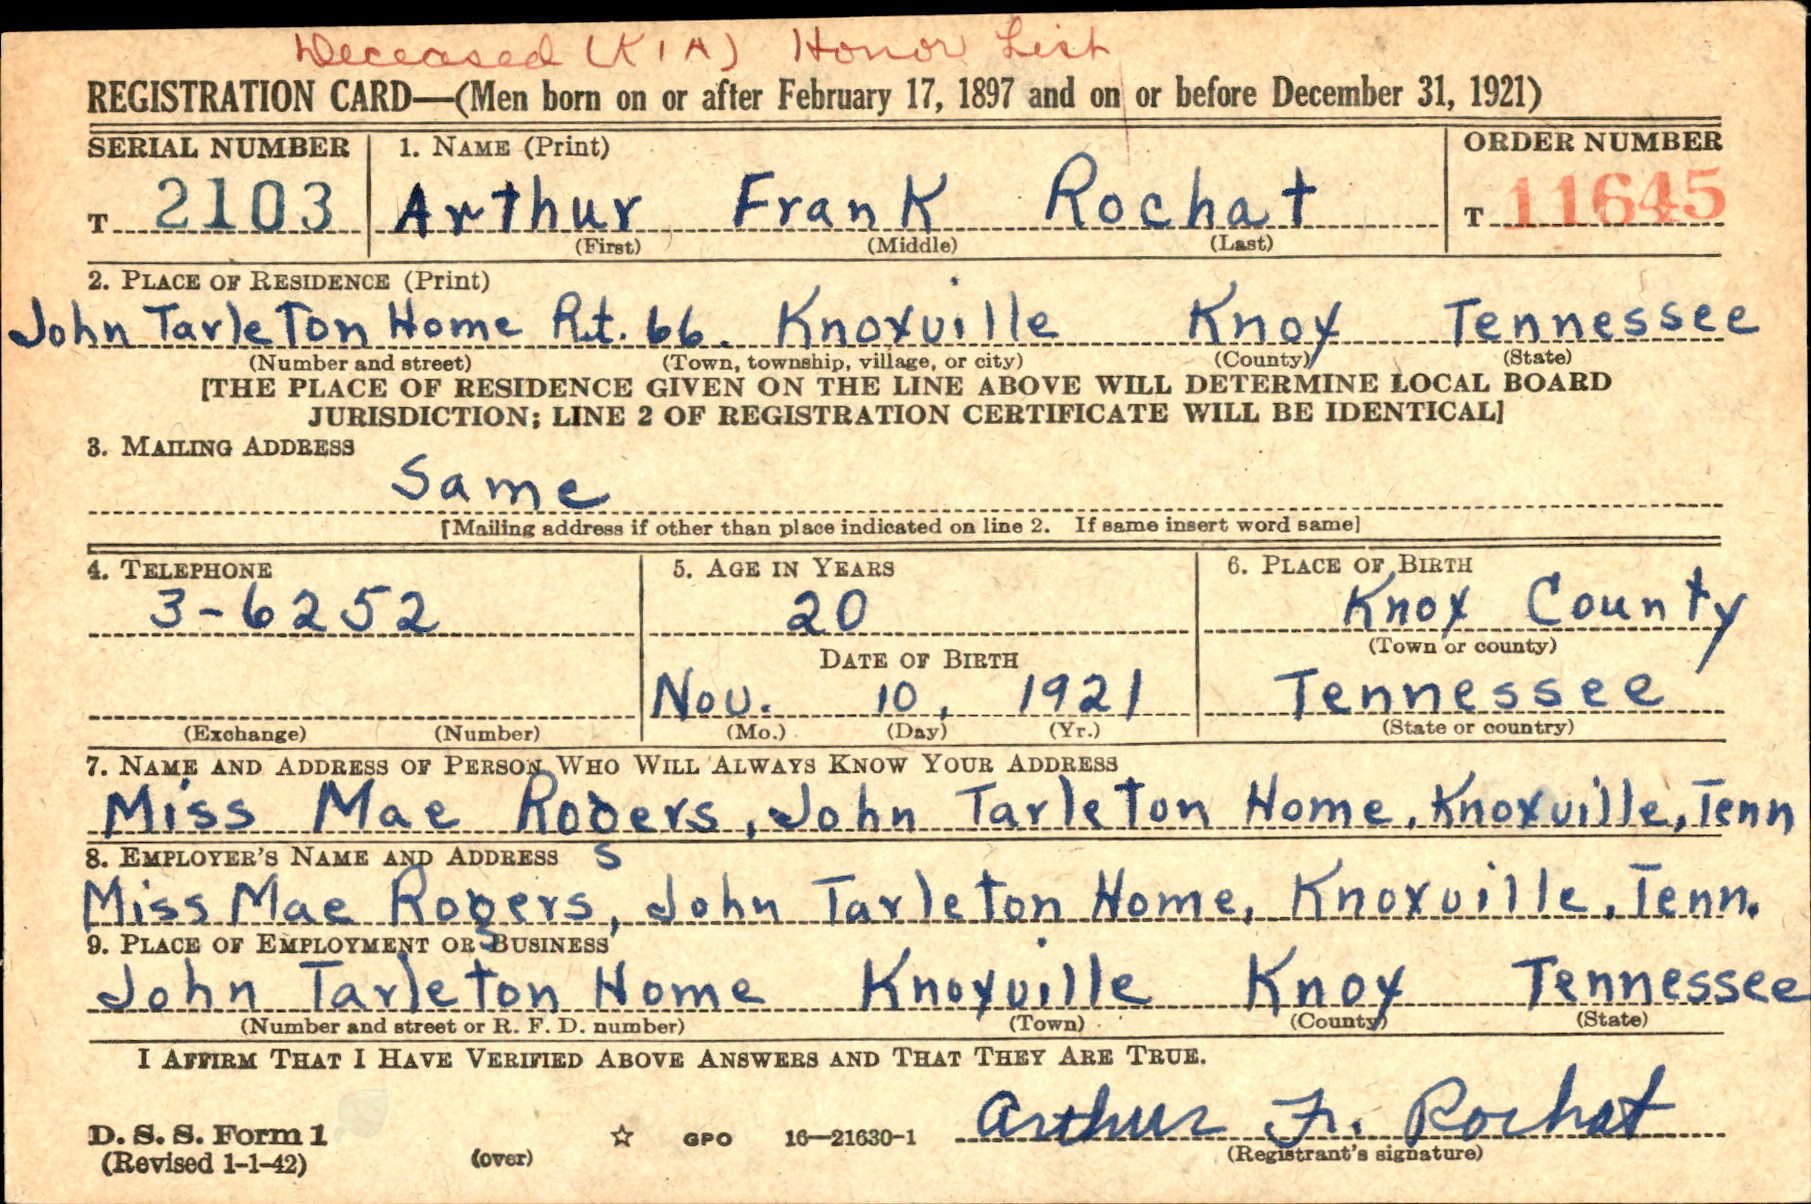 Deceased (KIA) Honor List
REGISTRATION CARD—(Men born on or after February 17, 1897 and on or before December 31, 1921)
SERIAL NUMBER 1. NAME (Print) ORDER NUMBER
T 2103 Arthur Frank Rochat T 11645
(First) (Middle) (Last)
2. PLACE OF RESIDENCE (Print)
John Tarleton Home Rt. 66. Knoxville Knox Tennessee
(Number and street) (Town, township, village, or city) (County) (State)
[THE PLACE OF RESIDENCE GIVEN ON THE LINE ABOVE WILL DETERMINE LOCAL BOARD
JURISDICTION; LINE 2 OF REGISTRATION CERTIFICATE WILL BE IDENTICAL]
3. MAILING ADDRESS
Same
[Mailing address if other than place indicated on line 2. If same insert word same]
4. TELEPHONE 5. AGE IN YEARS 6. PLACE OF BIRTH
3-6252 20 Knox County
DATE OF BIRTH (Town or county)
Nov. 10, 1921 Tennessee
(Exchange) (Number) (Mo.) (Day) (Yr.) (State or country)
7. NAME AND ADDRESS OF PERSON WHO WILL ALWAYS KNOW YOUR ADDRESS
Miss Mae Rogers, John Tarleton Home, Knoxville, Tenn
8. EMPLOYER'S NAME AND ADDRESS
Miss Mae Rogers, John Tarleton Home, Knoxville, Tenn.
9. PLACE OF EMPLOYMENT OR BUSINESS
John Tarleton Home Knoxville Knox Tennessee
(Number and street or R. F. D. number) (Town) (County) (State)
I AFFIRM THAT I HAVE VERIFIED ABOVE ANSWERS AND THAT THEY ARE TRUE.
Arthur Fr. Rochat
D. S. S. Form 1 GPO 16—21630-1
(Revised 1-1-42) (over) (Registrant's signature)